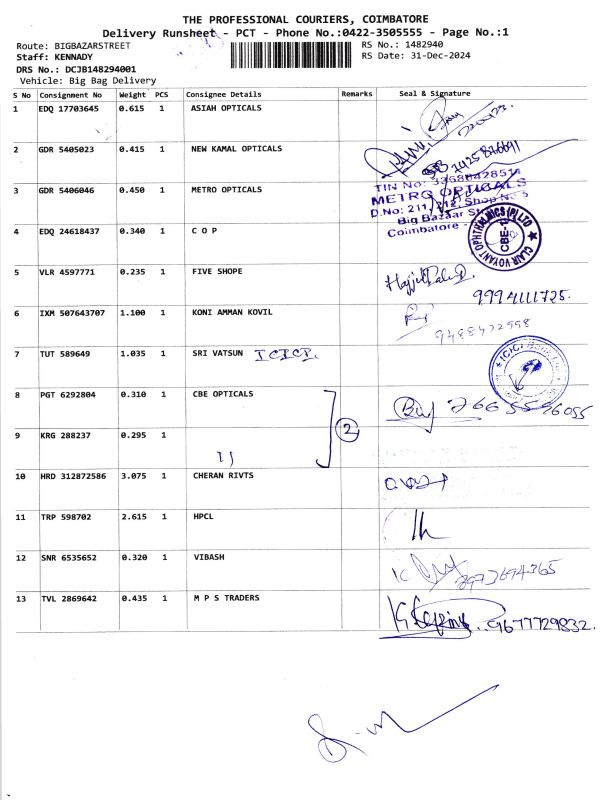 THE PROFESSIONAL COURIERS, COIMBATORE
Delivery Runsheet - PCT - Phone No.:0422-3505555 - Page No.:1
Route: BIGBAZARSTREET RS No.: 1482940
Staff: KENNADY RS Date: 31-Dec-2024
DRS No.: DCJB148294001
Vehicle: Big Bag Delivery
S No Consignment No Weight PCS Consignee Details Remarks Seal & Signature
1 EDQ 17703645 0.615 1 ASIAH OPTICALS
2 GDR 5405023 0.415 1 NEW KAMAL OPTICALS
3 GDR 5406046 0.450 1 METRO OPTICALS
TIN No: 33680428514
METRO OPTICALS
D.No: 211, 212, Shop No 5
Big Bazaar St
Coimbatore -
4 EDQ 24618437 0.340 1 C O P
CLAIR VOYANT OPHTHALMICS (P) LTD
CBE-1
5 VLR 4597771 0.235 1 FIVE SHOPE
9994111725.
6 IXM 507643707 1.100 1 KONI AMMAN KOVIL
9488422998
7 TUT 589649 1.035 1 SRI VATSUN ICICI.
ICICI Bank
8 PGT 6292804 0.310 1 CBE OPTICALS
2
9 KRG 288237 0.295 1
10 HRD 312872586 3.075 1 CHERAN RIVTS
11 TRP 598702 2.615 1 HPCL
12 SNR 6535652 0.320 1 VIBASH
8973694365
13 TVL 2869642 0.435 1 M P S TRADERS
9677729832.